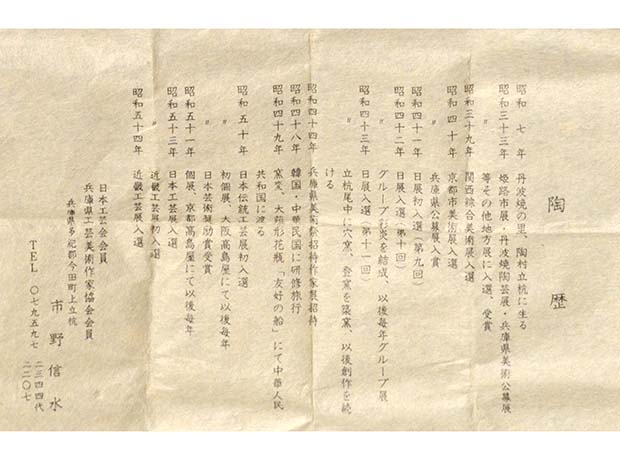 陶歴
昭和七年 丹波焼の里、陶村立杭に生る
昭和三十三年 姫路市展・丹波焼陶芸展・兵庫県美術公募展
〃 等その他地方展に入選、受賞
昭和三十九年 関西綜合美術展入選
昭和四十年 京都市美術展入選
〃 兵庫県公募展入賞
昭和四十一年 日展初入選(第九回)
昭和四十二年 日展入選(第十回)
〃 グループ炎を結成、以後毎年グループ展
昭和四十三年 日展入選(第十一回)
〃 立杭尾中に穴窯、登窯を築窯、以後創作を続
ける
昭和四十四年 兵庫県美術祭招待作家展招待
昭和四十八年 韓国・中華民国に研修旅行
昭和四十九年 窯変、大箱形花瓶「友好の船」にて中華人民
共和国に渡る
昭和五十年 日本伝統工芸展初入選
〃 初個展、大阪高島屋にて以後毎年
〃 日本芸術奨励賞受賞
昭和五十一年 個展、京都高島屋にて以後毎年
昭和五十三年 日本工芸展入選
〃 近畿工芸展初入選
昭和五十四年 近畿工芸展入選
日本工芸会会員
兵庫県工芸美術作家協会会員
兵庫県多紀郡今田町上立杭
市野信水
TEL 〇七九五九七
二三四四代
二二〇七